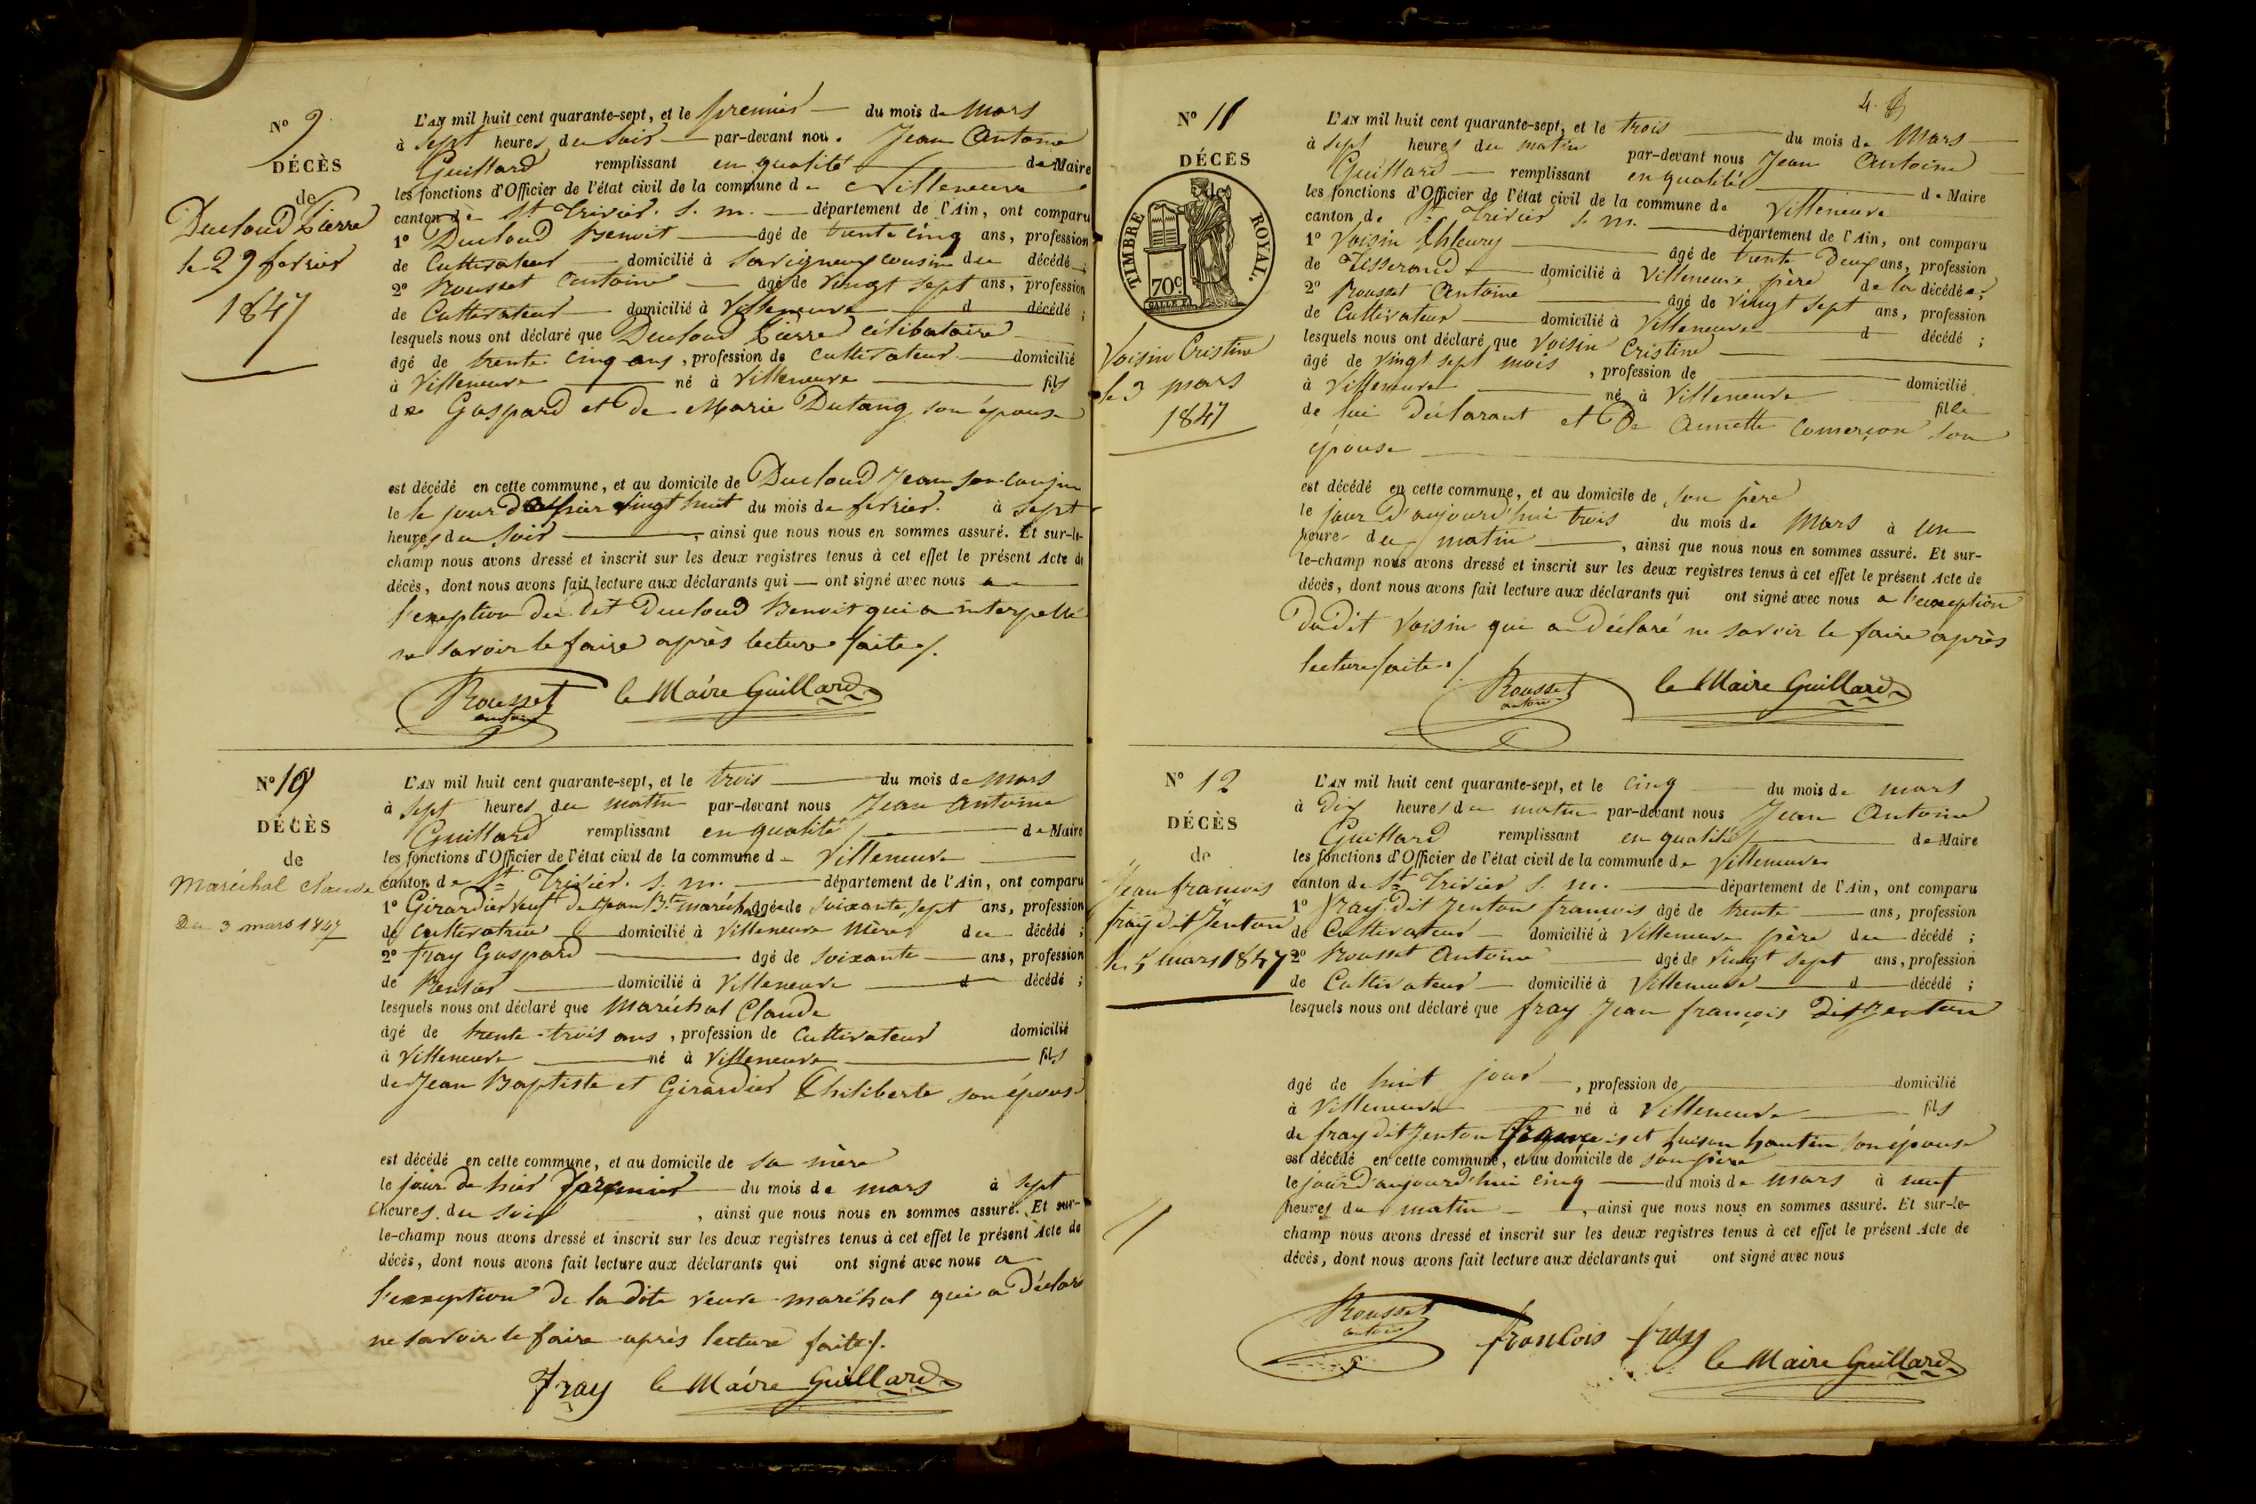 N° 9
DÉCÈS
de
Ducloud Pierre
le 29 fevrier
1847
L'AN mil huit cent quarante-sept, et le premier du mois de Mars
à sept heures du soir par-devant nous Jean Antoine
Guillard remplissant en qualité de Maire
les fonctions d'Officier de l'état civil de la commune de Villeneuve
canton de St Trivier. s. m. département de l'Ain, ont comparu
1° Ducloud Benoit âgé de trente cinq ans, profession
de Cultivateur domicilié à Savigneux cousin du décédé ;
2° Rousset Antoine âgé de vingt sept ans, profession
de Cultivateur domicilié à Villeneuve d décédé ;
lesquels nous ont déclaré que Ducloud Pierre célibataire
âgé de trente cinq ans, profession de cultivateur domicilié
à Villeneuve né à Villeneuve fils
de Gaspard et de Marie Dutang son épouse
est décédé en cette commune, et au domicile de Ducloud Jean son cousin
le le jour d'hier vingt huit du mois de fevrier. à sept
heures du soir, ainsi que nous nous en sommes assuré. Et sur-le-
champ nous avons dressé et inscrit sur les deux registres tenus à cet effet le présent Acte de
décès, dont nous avons fait lecture aux déclarants qui ont signé avec nous a
l'exeption du dit Ducloud Benoit qui a interpellé
ne savoir le faire après lecture faite /.
Rousset antoine le Maire Guillard
N° 10
DÉCÈS
de
Maréchal Claude
Du 3 mars 1847
L'AN mil huit cent quarante-sept, et le trois du mois de mars
à sept heures du matin par-devant nous Jean Antoine
Guillard remplissant en qualité de Maire
les fonctions d'Officier de l'état civil de la commune d Villeneuve
canton de St Trivier. s. m. département de l'Ain, ont comparu
1° Girardier veuf de Jean Bte maréchal âgée de soixante sept ans, profession
de cultivatrice domicilié à Villeneuve mère du décédé ;
2° fray Gaspard âgé de soixante ans, profession
de Rentier domicilié à Villeneuve d décédé ;
lesquels nous ont déclaré que Maréchal Claude
âgé de trente-trois ans, profession de cultivateur domicilié
à Villeneuve né à Villeneuve fils
de Jean Baptiste et Girardier Philiberte son épouse
est décédé en cette commune, et au domicile de sa mère
le jour de hier premier du mois de mars à sept
heures du soir, ainsi que nous nous en sommes assuré. Et sur-
le-champ nous avons dressé et inscrit sur les deux registres tenus à cet effet le présent Acte de
décès, dont nous avons fait lecture aux déclarants qui ont signé avec nous a
l'exeption de la dite veuve maréchal qui a Déclaré
ne savoir le faire après lecture faite /.
Fray le Maire Guillard
4.
N° 11
DÉCÈS
TIMBRE ROYAL.
70c
Voisin Cristine
le 3 mars
1847
L'AN mil huit cent quarante-sept, et le trois du mois de Mars
à sept heures du matin par-devant nous Jean Antoine
Guillard remplissant en qualité de Maire
les fonctions d'Officier de l'état civil de la commune de Villeneuve
canton de St Trivier s. m. département de l'Ain, ont comparu
1° Voisin Phleury âgé de trente deux ans, profession
de Tisserand domicilié à Villeneuve père de la décédée ;
2° Rousset Antoine âgé de vingt sept ans, profession
de Cultivateur domicilié à Villeneuve d décédé ;
lesquels nous ont déclaré que Voisin Cristine
âgé de vingt sept mois, profession de domicilié
à Villeneuve né à Villeneuve fille
de lui déclarant et De Annette Comerçon son
épouse
est décédé en cette commune, et au domicile de son père
le jour d'aujourd'hui trois du mois de Mars à une
heure du matin, ainsi que nous nous en sommes assuré. Et sur-
le-champ nous avons dressé et inscrit sur les deux registres tenus à cet effet le présent Acte de
décès, dont nous avons fait lecture aux déclarants qui ont signé avec nous a l'exeption
Dudit Voisin qui a Déclaré ne savoir le faire après
lecture faite /.
Rousset antoine le Maire Guillard
N° 12
DÉCÈS
de
Jean francois
fray dit Jenton
le 5 mars 1847
L'AN mil huit cent quarante-sept, et le cinq du mois de mars
à dix heures du matin par-devant nous Jean Antoine
Guillard remplissant en qualité de Maire
les fonctions d'Officier de l'état civil de la commune de Villeneuve
canton de St Trivier s. m. département de l'Ain, ont comparu
1° fray dit Jenton francois âgé de trente ans, profession
de Cultivateur domicilié à Villeneuve père du décédé ;
2° Rousset Antoine âgé de vingt sept ans, profession
de Cultivateur domicilié à Villeneuve d décédé ;
lesquels nous ont déclaré que fray Jean françois dit Jenton
âgé de huit jour, profession de domicilié
à Villeneuve né à Villeneuve fils
de fray dit Jenton francois et son épouse
est décédé en cette commune, et au domicile de son père
le jour d'aujourd'hui cinq du mois de mars à neuf
heures du matin, ainsi que nous nous en sommes assuré. Et sur-le-
champ nous avons dressé et inscrit sur les deux registres tenus à cet effet le présent Acte de
décès, dont nous avons fait lecture aux déclarants qui ont signé avec nous
Rousset antoine francois fray le Maire Guillard